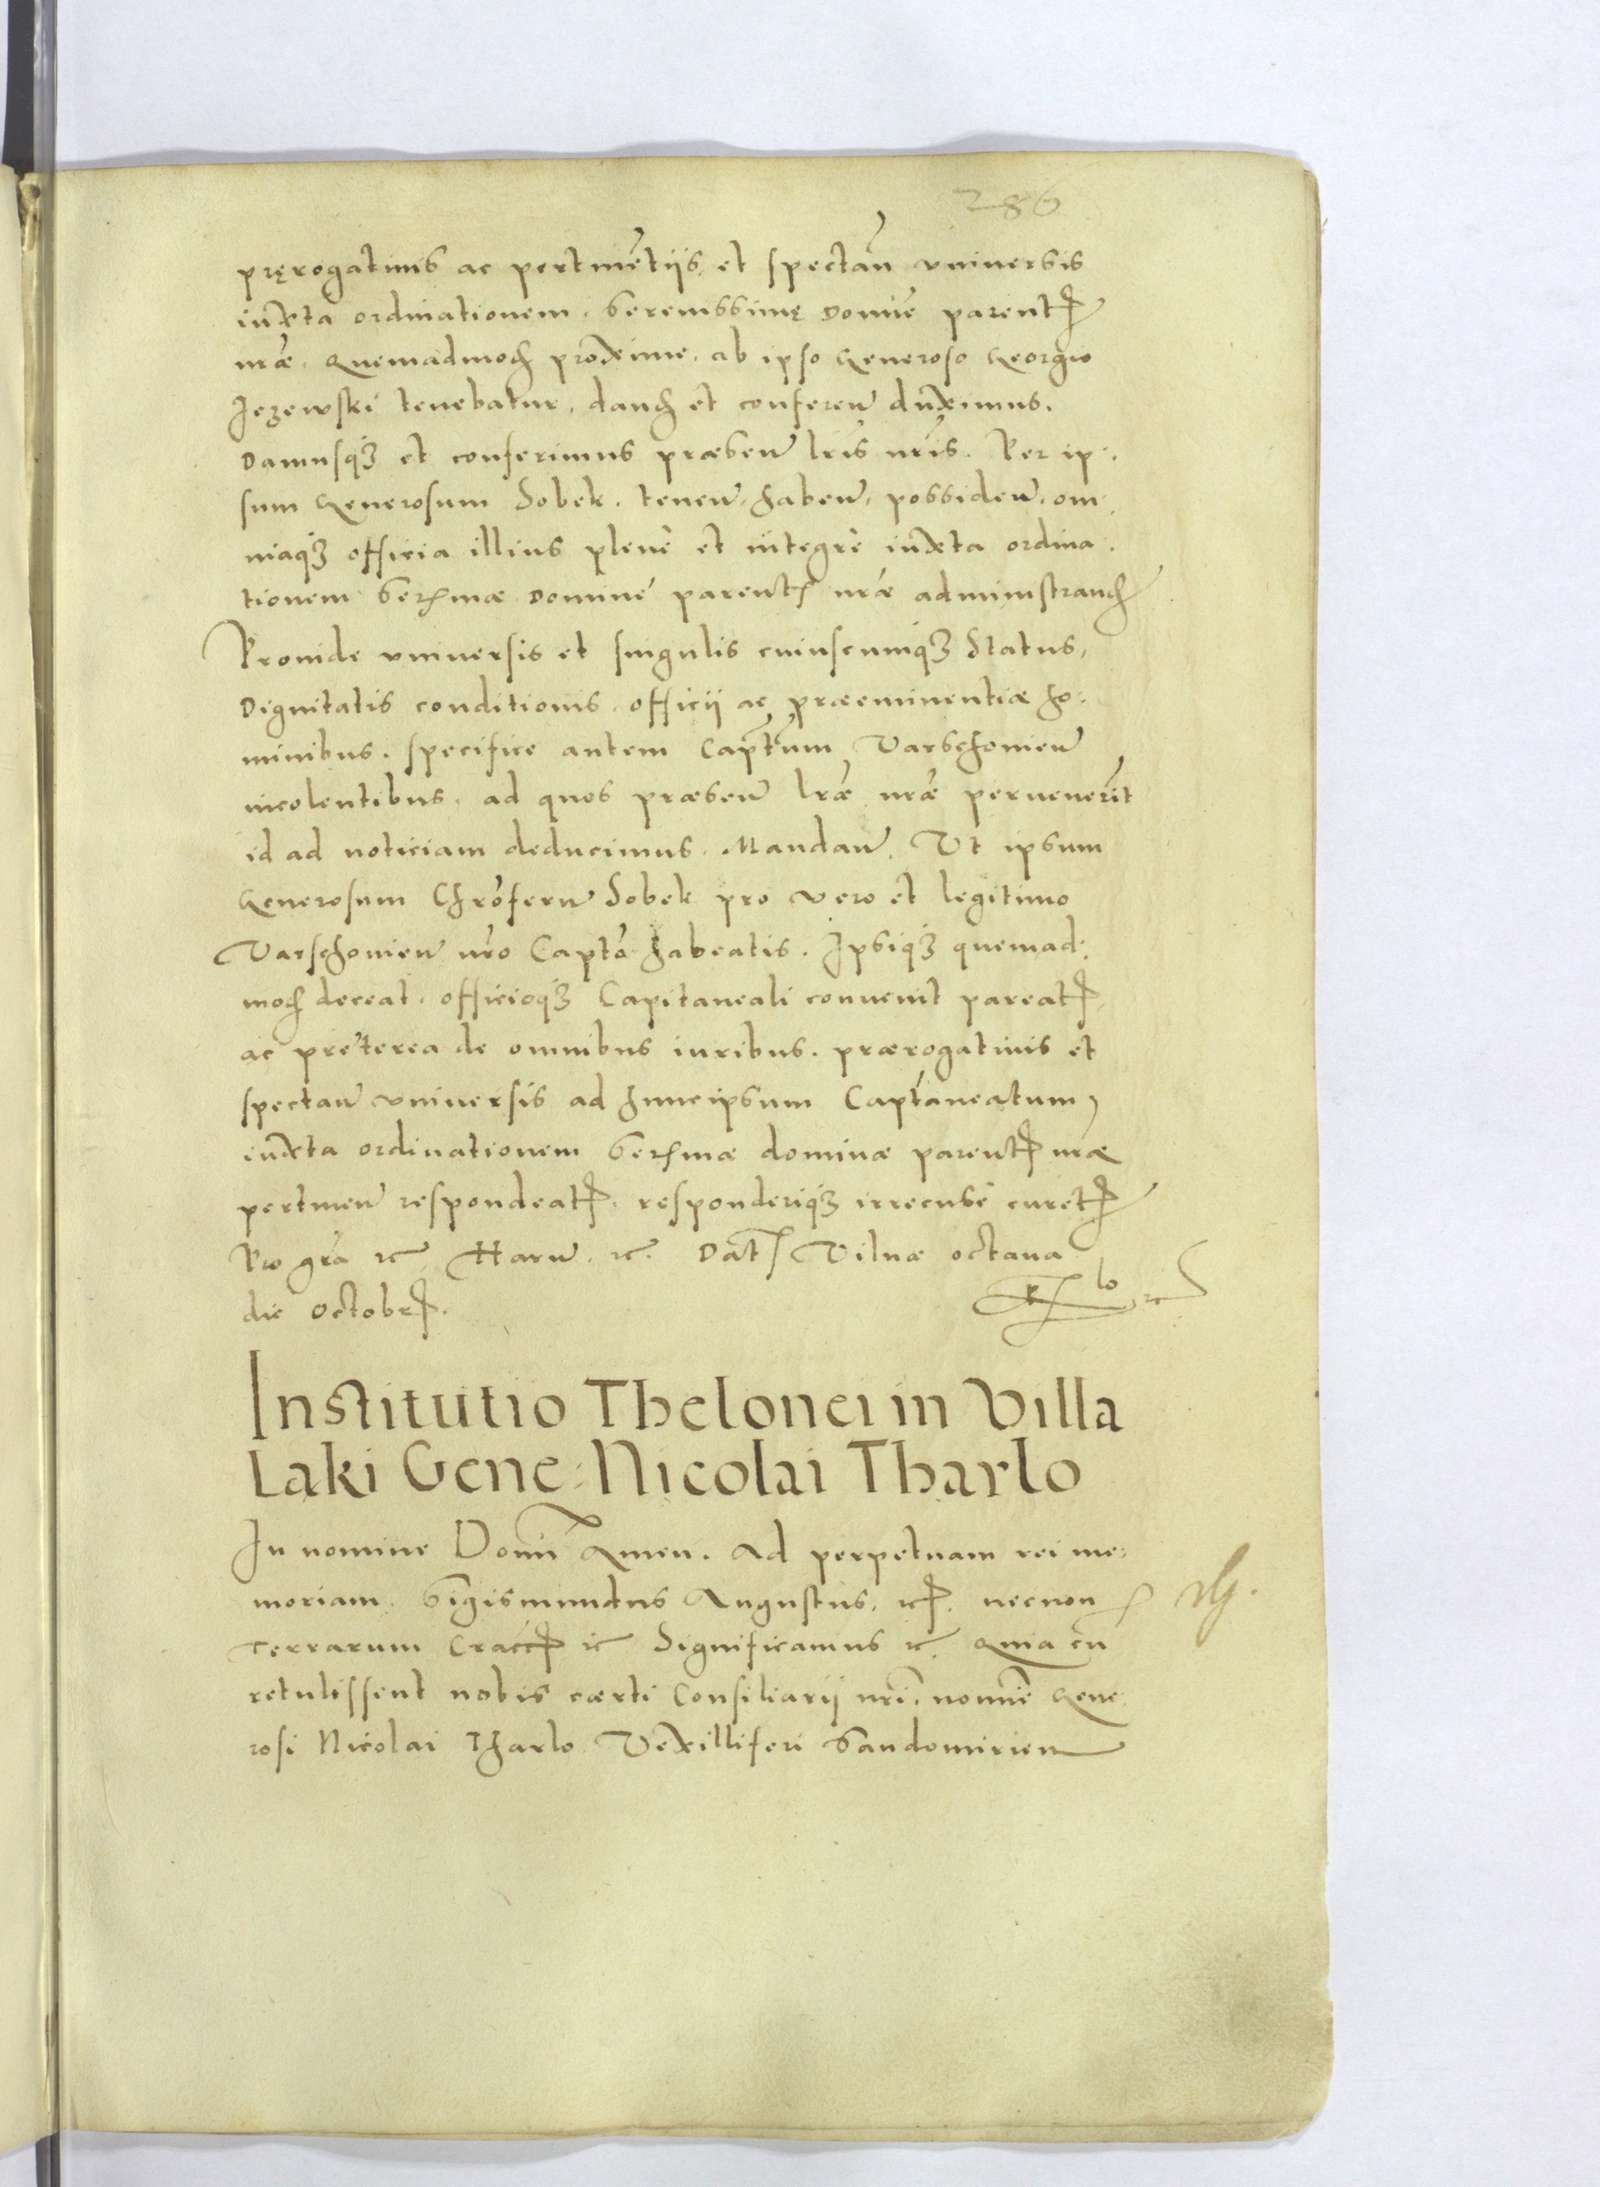 286
pręrogativis ac pertinẽtiis, et spectañ universis
iuxta ordinationem Serenissimę Domĩe parentꝭ
nr̃æ, quemadmod proxime, ab ipso Generoso Georgio
Jezewski tenebatur, dand et conferen duximus.
Damusqꝫ et conferimus præsen lr̃is nr̃is. Per ip:
sum Generosum Sobek, tenen, haben, possiden, om:
niaqꝫ officia illius plenè et integrè iuxta ordina:
tionem Serꝭmæ Dominę parentꝭ nr̃æ administrand
Proinde universis et singulis cuiuscunqꝫ Status,
Dignitatis conditionis officii ac præeminentiæ ho:
minibus, specifice autem Capt̃um Varschovien
incolentibus, ad quos præsen lr̃æ nr̃æ pervenerĩt
id ad noticiam deducimus. Mandan, Ut ipsum
Generosum Chrõferu Sobek pro vero et legitimo
Varschovien nr̃o Captõ habeatis. Ipsiqꝫ quemad:
mod deceat, officioqꝫ Capitaneali convenit pareatꝭ
ac preterea de omnibus iuribus, prærogativis et
spectan universis ad huncipsum Captãneatum,
iuxta ordinationem Serꝭmæ dominæ parentꝭ nr̃æ
pertinen respondeatꝭ, responderiqꝫ irrecuse curetꝭ
Pro gr̃a etc Harum etc. Datꝭ Vilnæ octava
die Octobrꝭ.
Institutio Thelonei in Villa
Laki Gene: Nicolai Tharlo
In nomine Domĩ Amen. Ad perpetuam rei me:
moriam. Sigismundus Augustus, etc. necnon
Terrarum Craccꝭ etc Significamus etc. Quia cũ
retulissent nobis cærti Consiliarii nr̃i, nomĩe Gene
rosi Nicolai Tharlo Vexilliferi Sandomirien